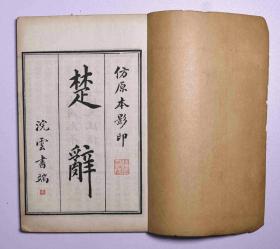 仿原本影印
楚辭
浣雲書端